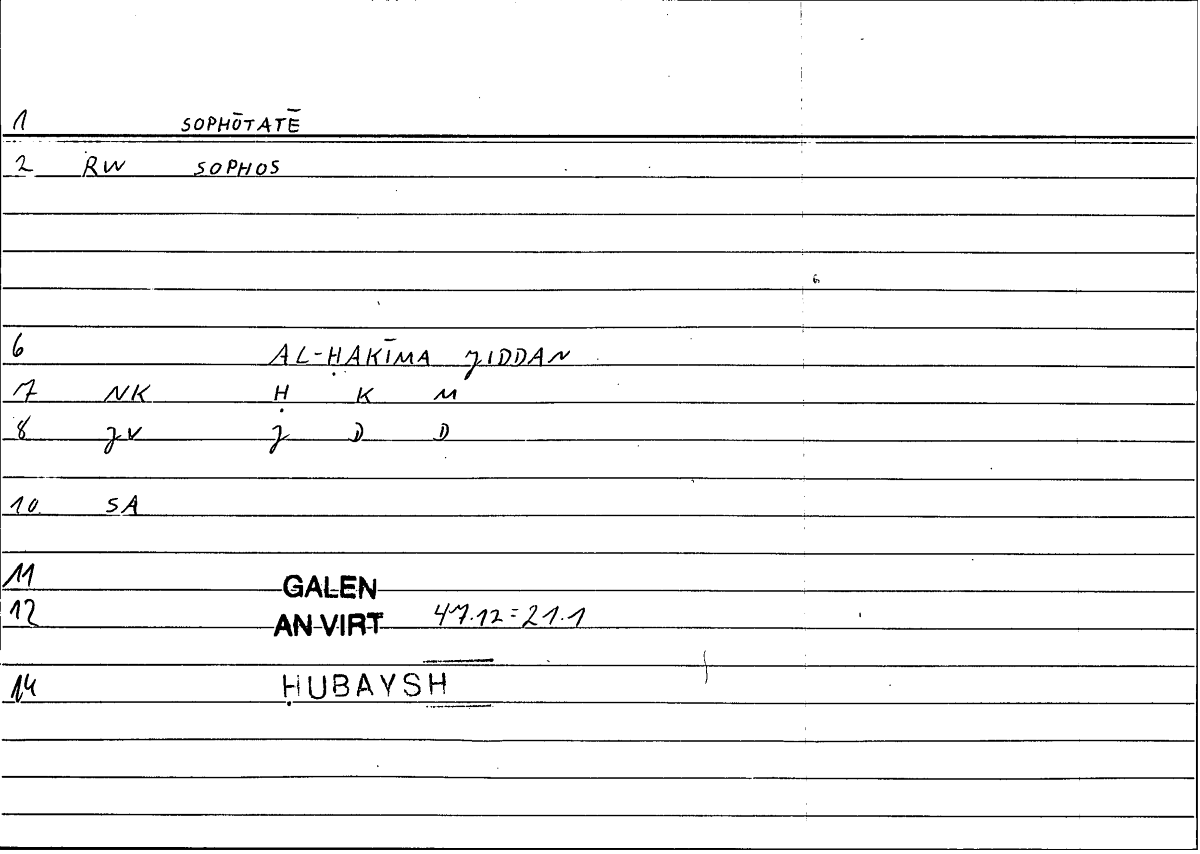 1 SOPHŌTATĒ
2 RW SOPHOS
6 AL-ḤAKĪMA JIDDAN
7 NK Ḥ K M
8 JV J D D
10 SA
11 GALEN
12 AN VIRT 47.12=21.1
14 ḤUBAYSH